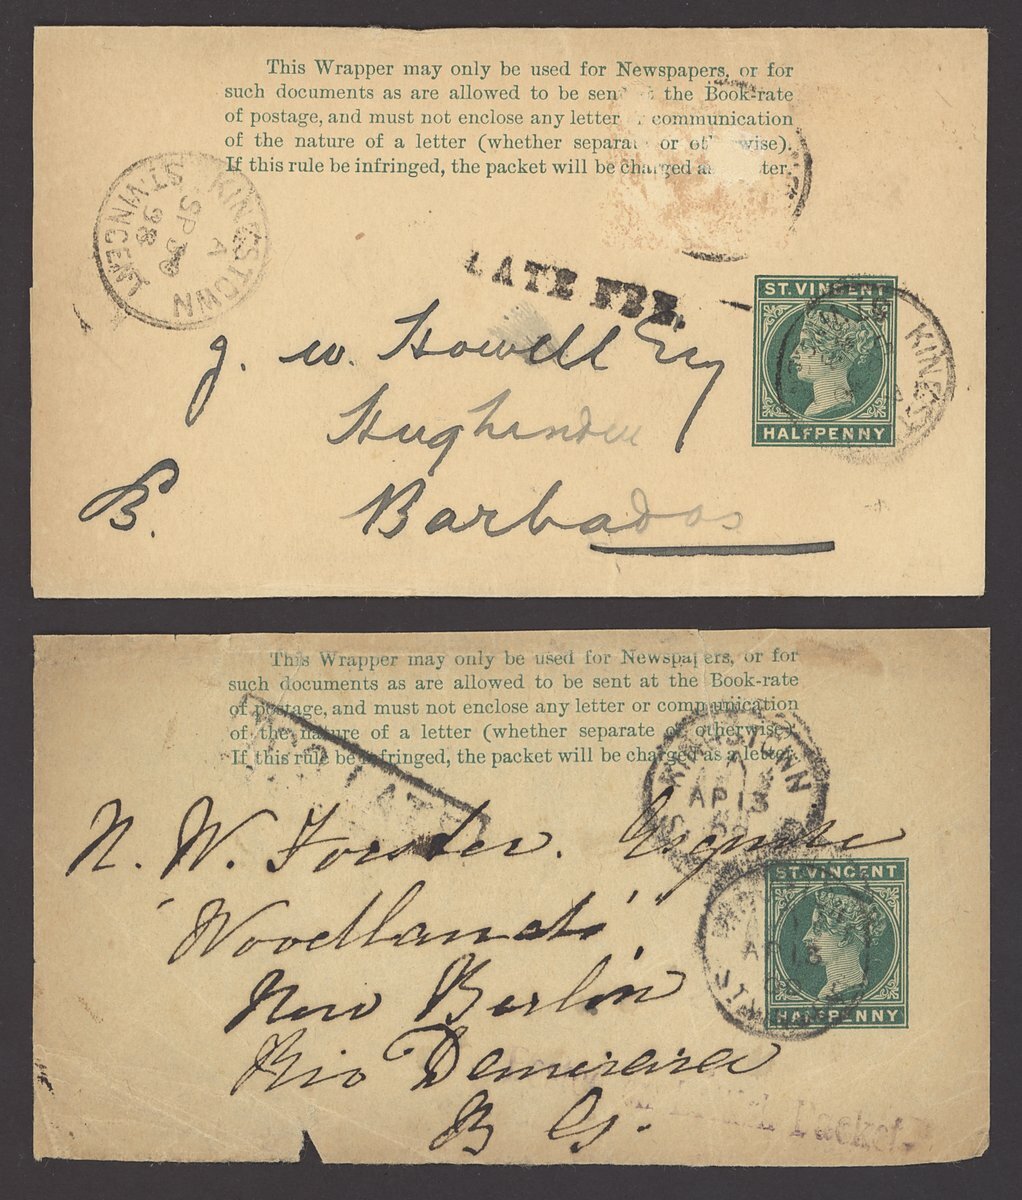 This Wrapper may only be used for Newspapers, or for
such documents as are allowed to be sent at the Book-rate
of postage, and must not enclose any letter communication
of the nature of a letter (whether separate or otherwise).
If this rule be infringed, the packet will be charged as letter.
KINGSTOWN
A
SP
98
ST. VINCENT
LATE FEE.
ST. VINCENT
HALFPENNY
J. W. Howell Esq
Hughenden
B. Barbados
This Wrapper may only be used for Newspapers, or for
such documents as are allowed to be sent at the Book-rate
of postage, and must not enclose any letter or communication
of the nature of a letter (whether separate or otherwise).
If this rule be infringed, the packet will be charged as a letter.
TOO LATE
KINGSTOWN
AP 13
N. W. Forster. Esquire
"Woodlands"
New Berlin
Rio Demerara
B G.
ST. VINCENT
HALFPENNY
AP 13
Packet